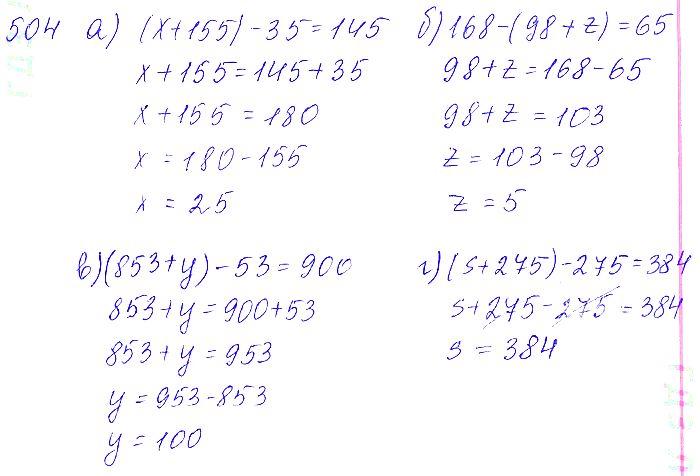 504 а) (x+155)-35=145
x+155=145+35
x+155=180
x=180-155
x=25
б) 168-(98+z)=65
98+z=168-65
98+z=103
z=103-98
z=5
в) (853+y)-53=900
853+y=900+53
853+y=953
y=953-853
y=100
г) (s+275)-275=384
s+275-275=384
s=384